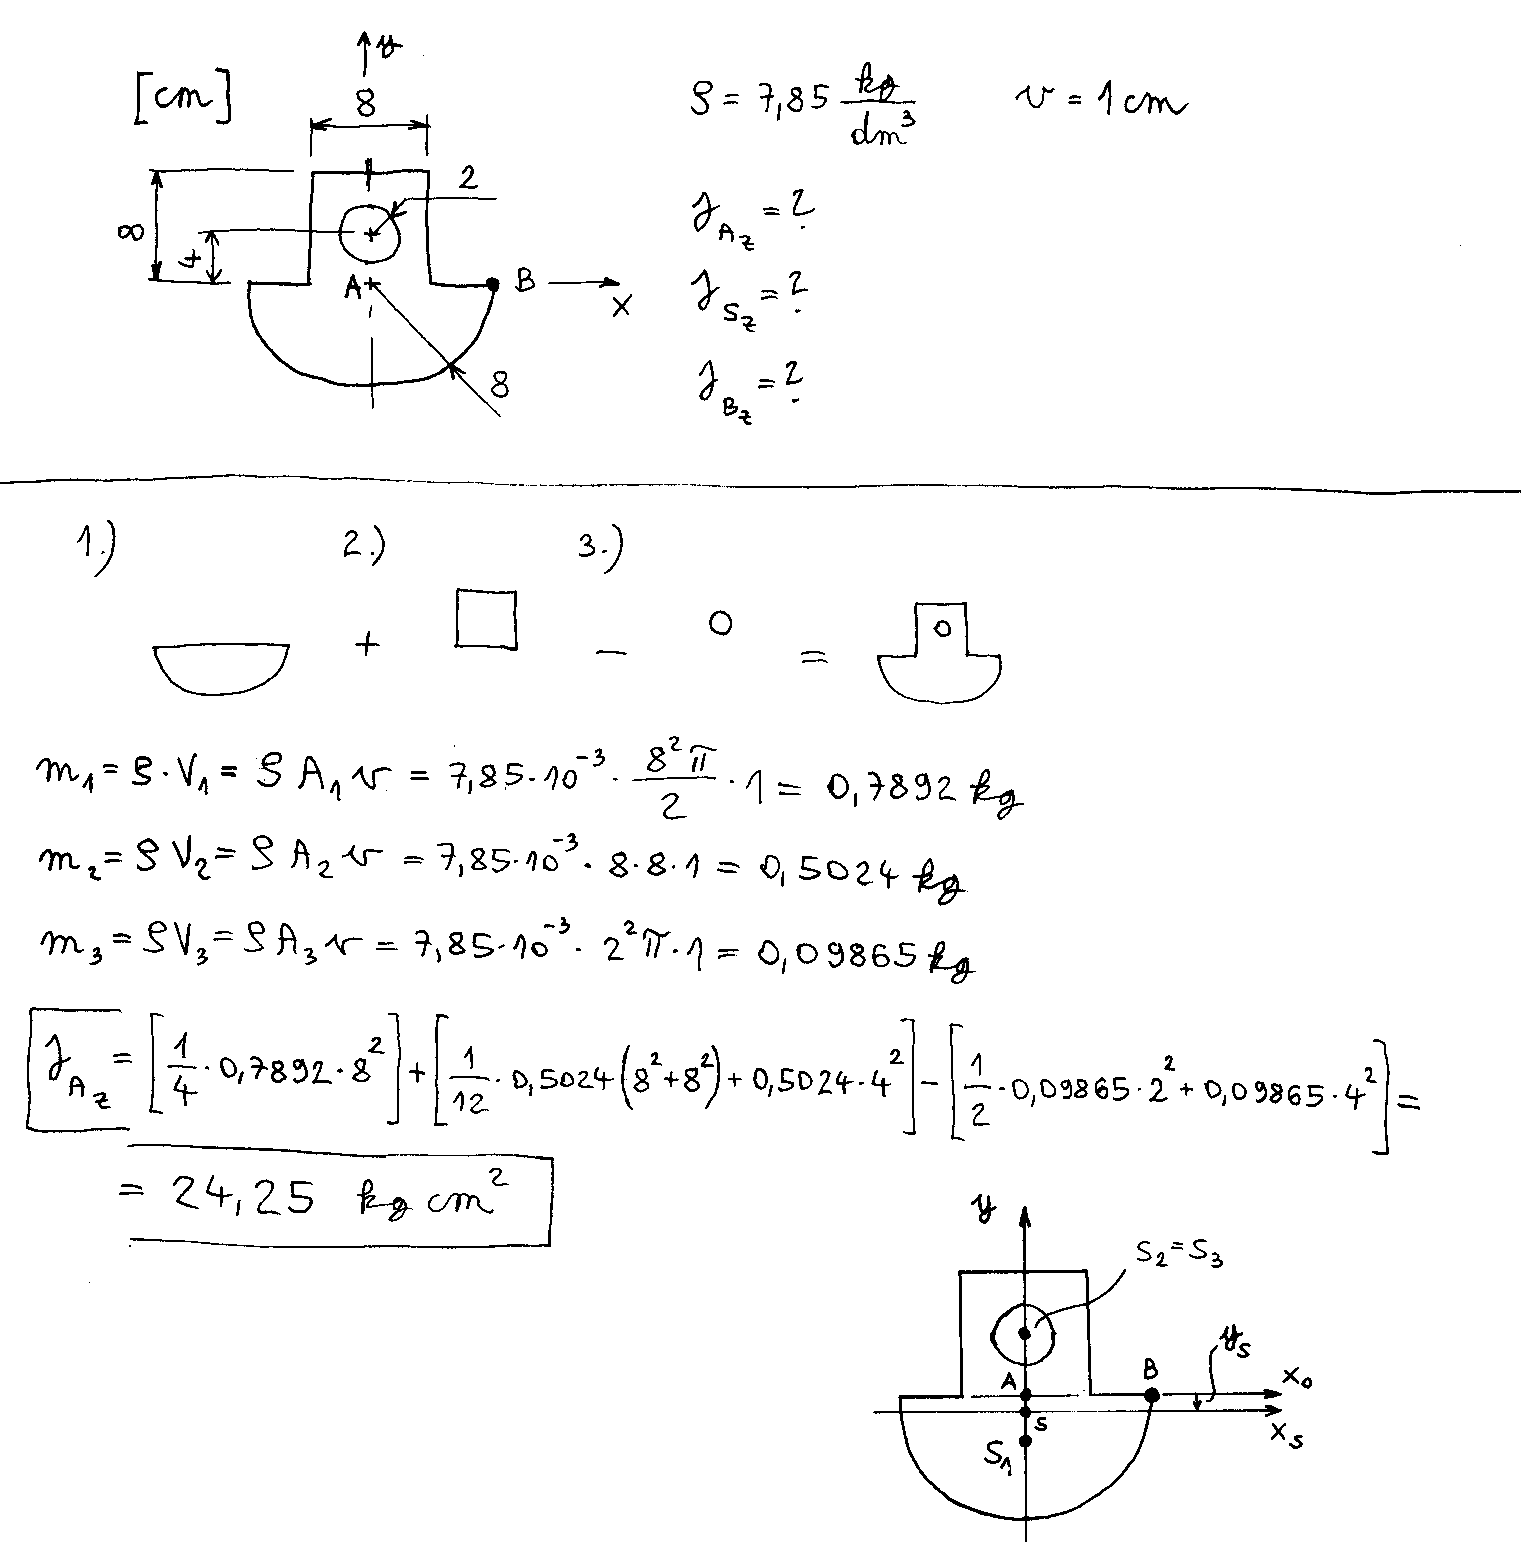 [cm]
y
8
ρ = 7,85 kg/dm³
v = 1 cm
2
8
4
A
B
x
8
J_Az = ?
J_Sz = ?
J_Bz = ?
1.) 2.) 3.)
+ − =
m₁ = ρ · V₁ = ρ A₁ v = 7,85·10⁻³ · 8²π/2 · 1 = 0,7892 kg
m₂ = ρ V₂ = ρ A₂ v = 7,85·10⁻³ · 8·8·1 = 0,5024 kg
m₃ = ρ V₃ = ρ A₃ v = 7,85·10⁻³ · 2²π·1 = 0,09865 kg
J_Az = [1/4 · 0,7892 · 8²] + [1/12 · 0,5024 (8²+8²) + 0,5024·4²] − [1/2 · 0,09865·2² + 0,09865·4²] =
= 24,25 kg cm²
y
S₂=S₃
y_s
A
B
x₀
S
x_s
S₁